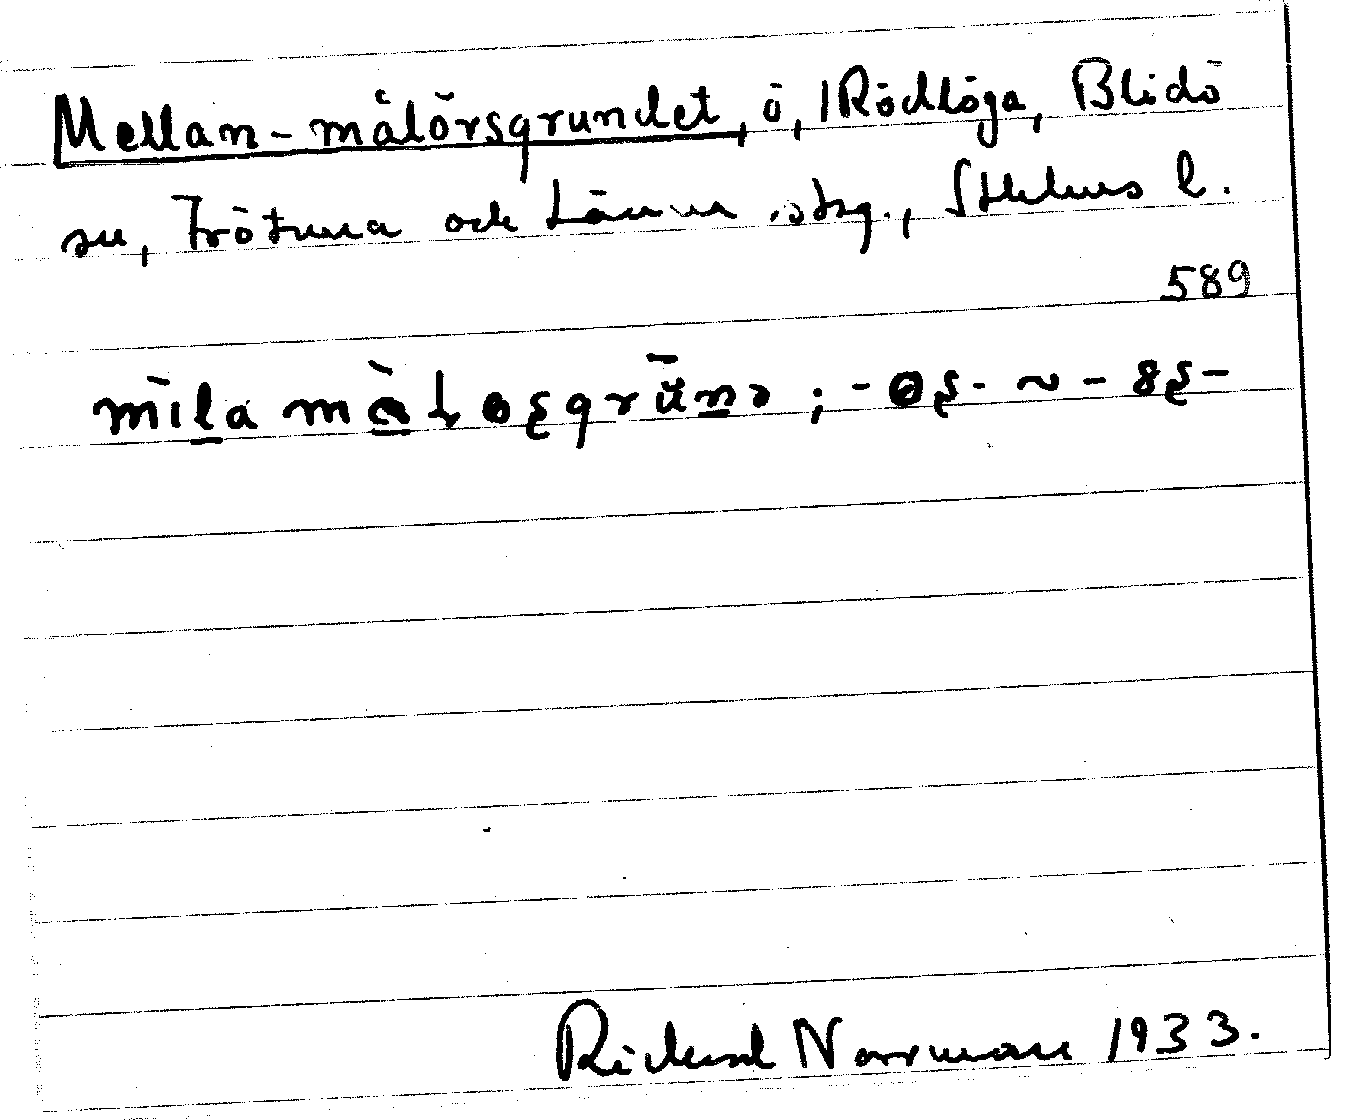 Mellan-målörsgrundet, ö, Rödlöga, Blidö
sn, Frötuna och Länna skg., Sthlms l.
589
Richard Norrman 1933.